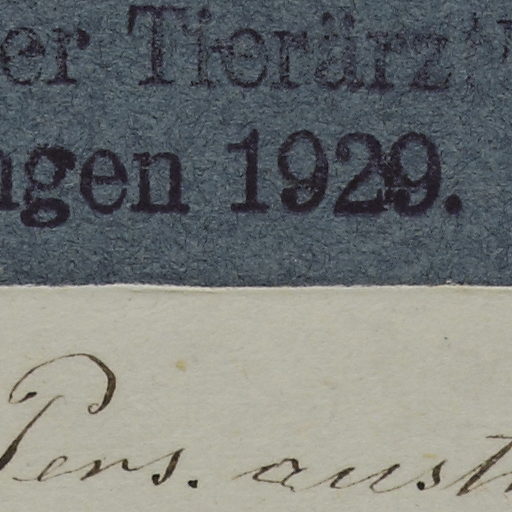 er Tierärz
ngen 1929.
Pers. aust